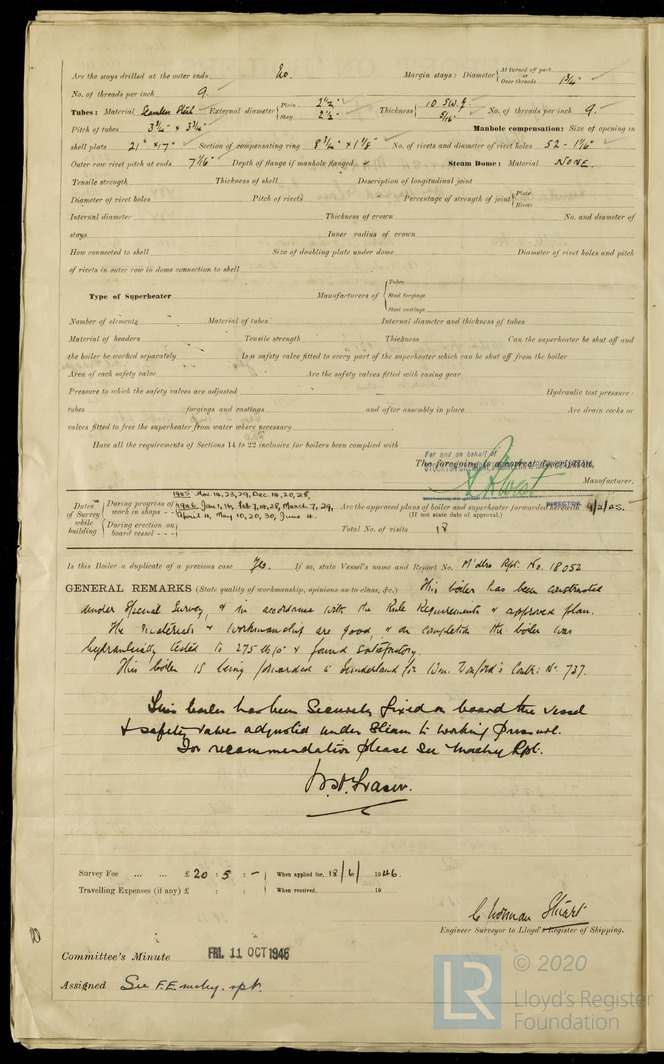 Are the stays drilled at the outer ends No. Margin stays: Diameter { At turned off part or Over threads 1 3/4" ✓
No. of threads per inch 9.
Tubes: Material Seamless Steel External diameter { Plain 2 1/2" Stay 2 1/2" Thickness { 10 S.W.G. 5/16" No. of threads per inch 9.
Pitch of tubes 3 3/4" × 3 3/4" Manhole compensation: Size of opening in
shell plate 21" × 17" Section of compensating ring 8 3/4" × 1 1/8" No. of rivets and diameter of rivet holes 52 - 1 1/16"
Outer row rivet pitch at ends 7 1/16" Depth of flange if manhole flanged ✓ Steam Dome: Material NONE.
Tensile strength Thickness of shell Description of longitudinal joint
Diameter of rivet holes Pitch of rivets Percentage of strength of joint { Plate Rivets
Internal diameter Thickness of crown No. and diameter of
stays Inner radius of crown
How connected to shell Size of doubling plate under dome Diameter of rivet holes and pitch
of rivets in outer row in dome connection to shell
Type of Superheater Manufacturers of { Tubes Steel forgings Steel castings
Number of elements Material of tubes Internal diameter and thickness of tubes
Material of headers Tensile strength Thickness Can the superheater be shut off and
the boiler be worked separately Is a safety valve fitted to every part of the superheater which can be shut off from the boiler
Area of each safety valve Are the safety valves fitted with easing gear
Pressure to which the safety valves are adjusted Hydraulic test pressure:
tubes forgings and castings and after assembly in place Are drain cocks or
valves fitted to free the superheater from water where necessary
Have all the requirements of Sections 14 to 22 inclusive for boilers been complied with
For and on behalf of
The foregoing is a correct description,
Manufacturer.
DIRECTOR
Dates of Survey while building { During progress of work in shops - - 1945 Nov. 14, 23, 29, Dec. 14, 20, 28, 1946 Jan. 1, 16, Feb. 7, 14, 28, March 7, 29, April 11, May 10, 20, 30, June 4.
During erection on board vessel - - -
Are the approved plans of boiler and superheater forwarded herewith 9/2/45.
(If not state date of approval.)
Total No. of visits 18
Is this Boiler a duplicate of a previous case Yes. If so, state Vessel's name and Report No. M'dbro Rpt. No. 18052
GENERAL REMARKS (State quality of workmanship, opinions as to class, &c.) This boiler has been constructed
under Special Survey, & in accordance with the Rule Requirements & approved plan.
The materials & workmanship are good, & on completion the boiler was
hydraulically tested to 275 lb/□" & found satisfactory.
This boiler is being forwarded to Sunderland for Wm. Doxford's Contr: No. 737.
This boiler has been securely fixed on board the vessel
& safety valves adjusted under steam to working pressure.
For recommendation please see Machy Rpt.
Survey Fee ... ... £ 20 : 5 : - When applied for, 18/6/1946.
Travelling Expenses (if any) £ : : When received, 19
C Norman Stuart
Engineer Surveyor to Lloyd's Register of Shipping.
Committee's Minute FRI. 11 OCT 1946
Assigned See F.E. mchy. rpt.
LR © 2020
Lloyd's Register
Foundation